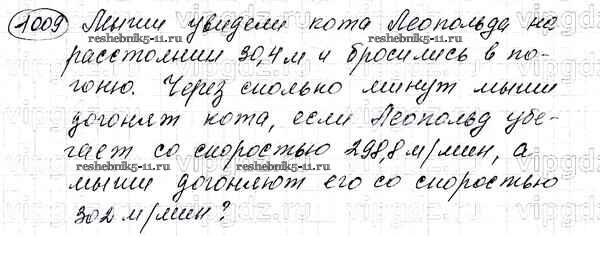 1009 Мыши увидели кота Леопольда на
расстоянии 30,4 м и бросились в по-
гоню. Через сколько минут мыши
догонят кота, если Леопольд убе-
гает со скоростью 298,8 м/мин, а
мыши догоняют его со скоростью
302 м/мин?
reshebnik5-11.ru
reshebnik5-11.ru
reshebnik5-11.ru
reshebnik5-11.ru
reshebnik5-11.ru
reshebnik5-11.ru
vipgdz.ru
vipgdz.ru
vipgdz.ru